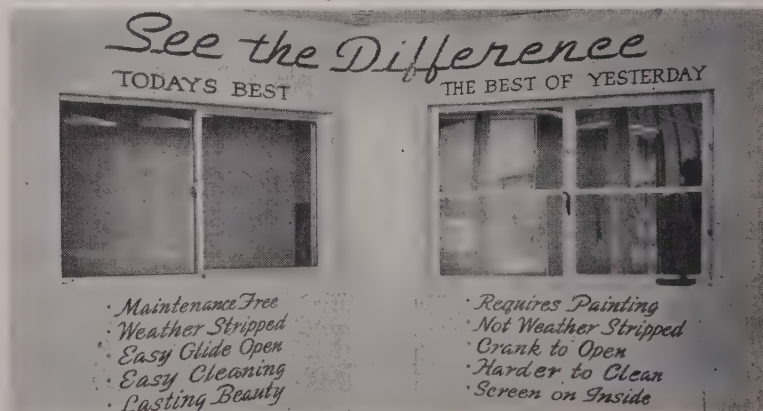 See the Difference
TODAYS BEST
THE BEST OF YESTERDAY
· Maintenance Free
· Weather Stripped
· Easy Glide Open
· Easy Cleaning
· Lasting Beauty
· Requires Painting
· Not Weather Stripped
· Crank to Open
· Harder to Clean
· Screen on Inside